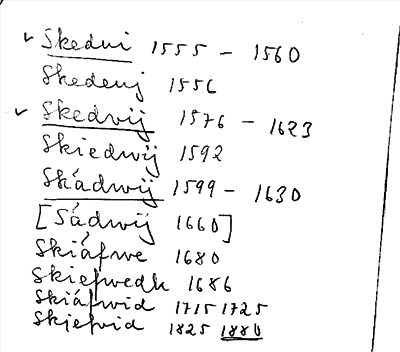 ✓ Skedvi 1555 - 1560
Skedenj 1556
✓ Skedvij 1576 - 1623
Skiedwij 1592
Skádwij 1599 - 1630
[Sádwij 1660]
Skiáfwe 1680
Skiefwedh 1686
Skiáfwid 1715 1725
Skjefvid 1825 1880